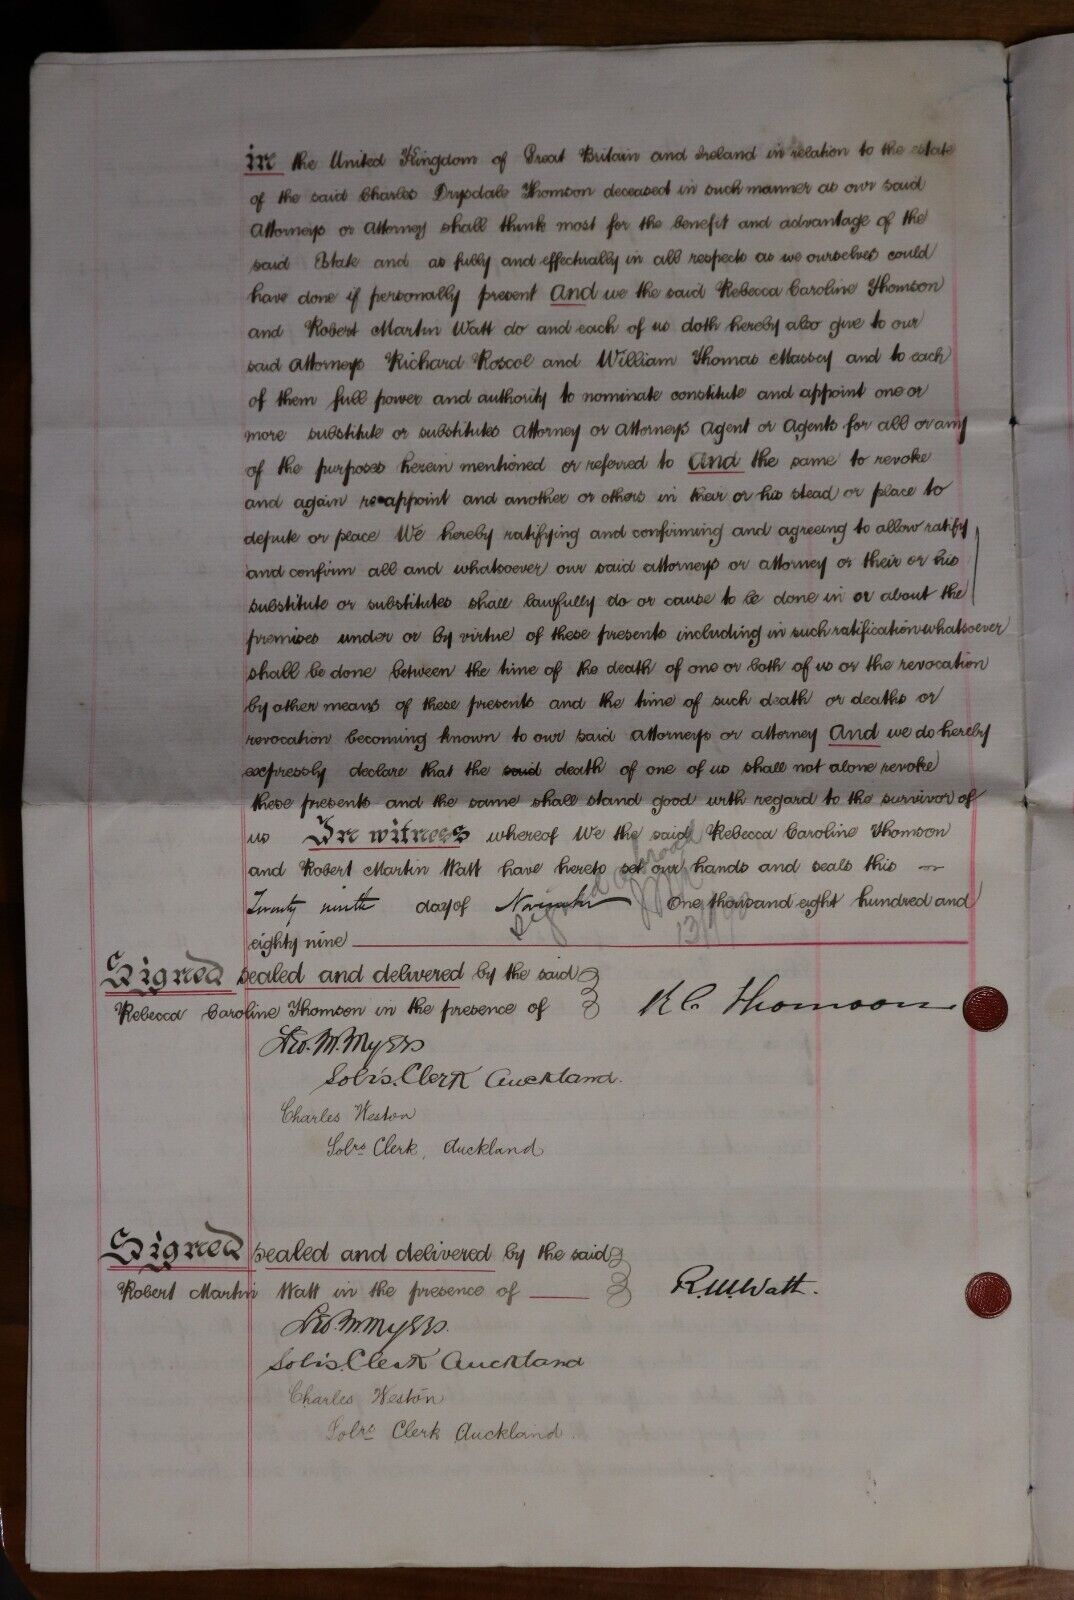 in the United Kingdom of Great Britain and Ireland in relation to the estate
of the said Charles Drysdale Thomson deceased in such manner as our said
Attorneys or Attorney shall think most for the benefit and advantage of the
said Estate and as fully and effectually in all respects as we ourselves could
have done if personally present And we the said Rebecca Caroline Thomson
and Robert Martin Watt do and each of us doth hereby also give to our
said Attorneys Richard Roscol and William Thomas Massey and to each
of them full power and authority to nominate constitute and appoint one or
more substitute or substitutes Attorney or Attorneys Agent or Agents for all or any
of the purposes herein mentioned or referred to And the same to revoke
and again reappoint and another or others in their or his stead or place to
depute or place We hereby ratifying and confirming and agreeing to allow ratify
and confirm all and whatsoever our said attorneys or attorney or their or his
substitute or substitutes shall lawfully do or cause to be done in or about the
premises under or by virtue of these presents including in such ratification whatsoever
shall be done between the time of the death of one or both of us or the revocation
by other means of these presents and the time of such death or deaths or
revocation becoming known to our said Attorneys or attorney And we do hereby
expressly declare that the said death of one of us shall not alone revoke
these presents and the same shall stand good with regard to the survivor of
us In witness whereof We the said Rebecca Caroline Thomson
and Robert Martin Watt have hereto set our hands and seals this
Twenty ninth day of November One thousand eight hundred and
eighty nine
Signed abroad
Signed sealed and delivered by the said
Rebecca Caroline Thomson in the presence of
R C Thomson
Geo. M. Myers
Solrs. Clerk Auckland.
Charles Weston
Solrs Clerk, Auckland
Signed sealed and delivered by the said
Robert Martin Watt in the presence of
R. M. Watt.
Geo M Myers.
Solrs. Clerk Auckland
Charles Weston
Solrs Clerk Auckland.